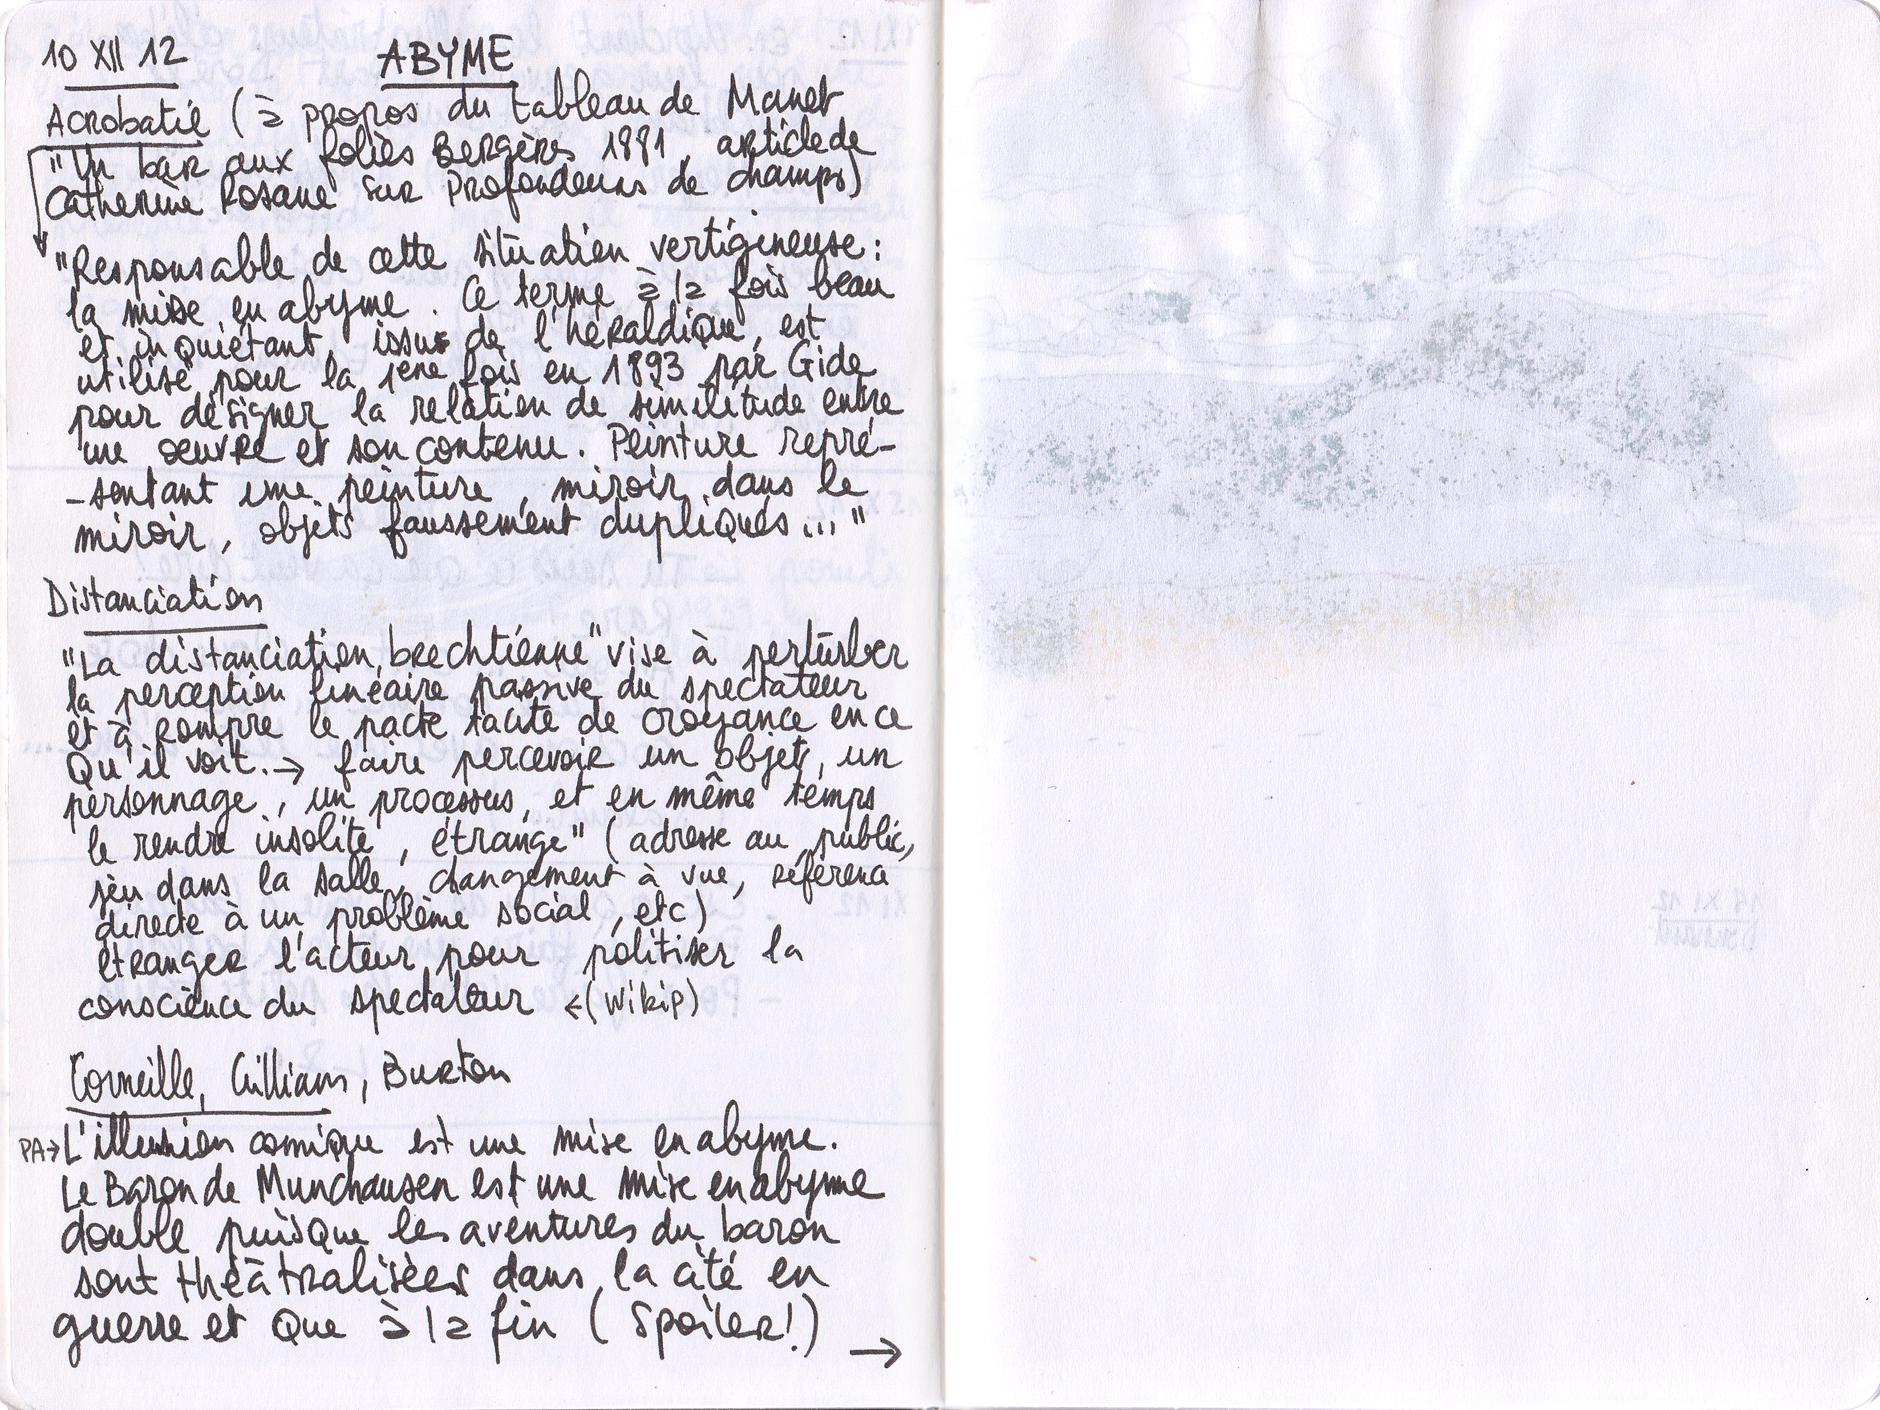 10 XII 12
ABYME
Acrobatie (à propos du tableau de Manet
"Un bar aux folies Bergères 1881, article de
Catherine Rosane sur Profondeurs de champs)
"Responsable de cette situation vertigineuse :
la mise en abyme. Ce terme à la fois beau
et inquiétant, issu de l'héraldique, est
utilisé pour la 1ère fois en 1893 par Gide
pour désigner la relation de similitude entre
une oeuvre et son contenu. Peinture repré-
-sentant une peinture, miroir dans le
miroir, objets faussement dupliqués..."
Distanciation
"La distanciation brechtienne" vise à perturber
la perception linéaire passive du spectateur
et à rompre le pacte tacite de croyance en ce
Qu'il voit. → faire percevoir un objet, un
personnage, un processus, et en même temps
le rendre insolite, étrange" (adresse au public,
jeu dans la salle, changement à vue, référence
directe à un problème social, etc)
étranger l'acteur pour politiser la
conscience du spectateur ← (Wikip)
Corneille, Gilliam, Burton
PA→ L'illusion comique est une mise en abyme.
Le Baron de Munchausen est une mise en abyme
double puisque les aventures du baron
sont théâtralisées dans la cité en
guerre et que à la fin (Spoiler!)
→
18 XI 12